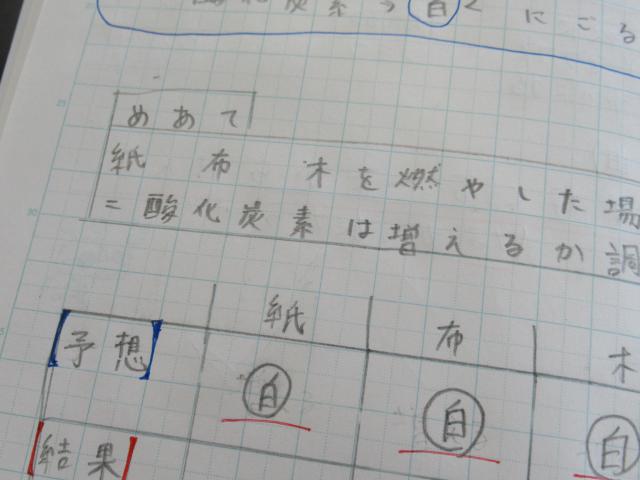 酸化炭素→白くにごる
めあて
紙 布 木を燃やした場
二酸化炭素は増えるか調
紙 布 木
予想 白 白 白
結果